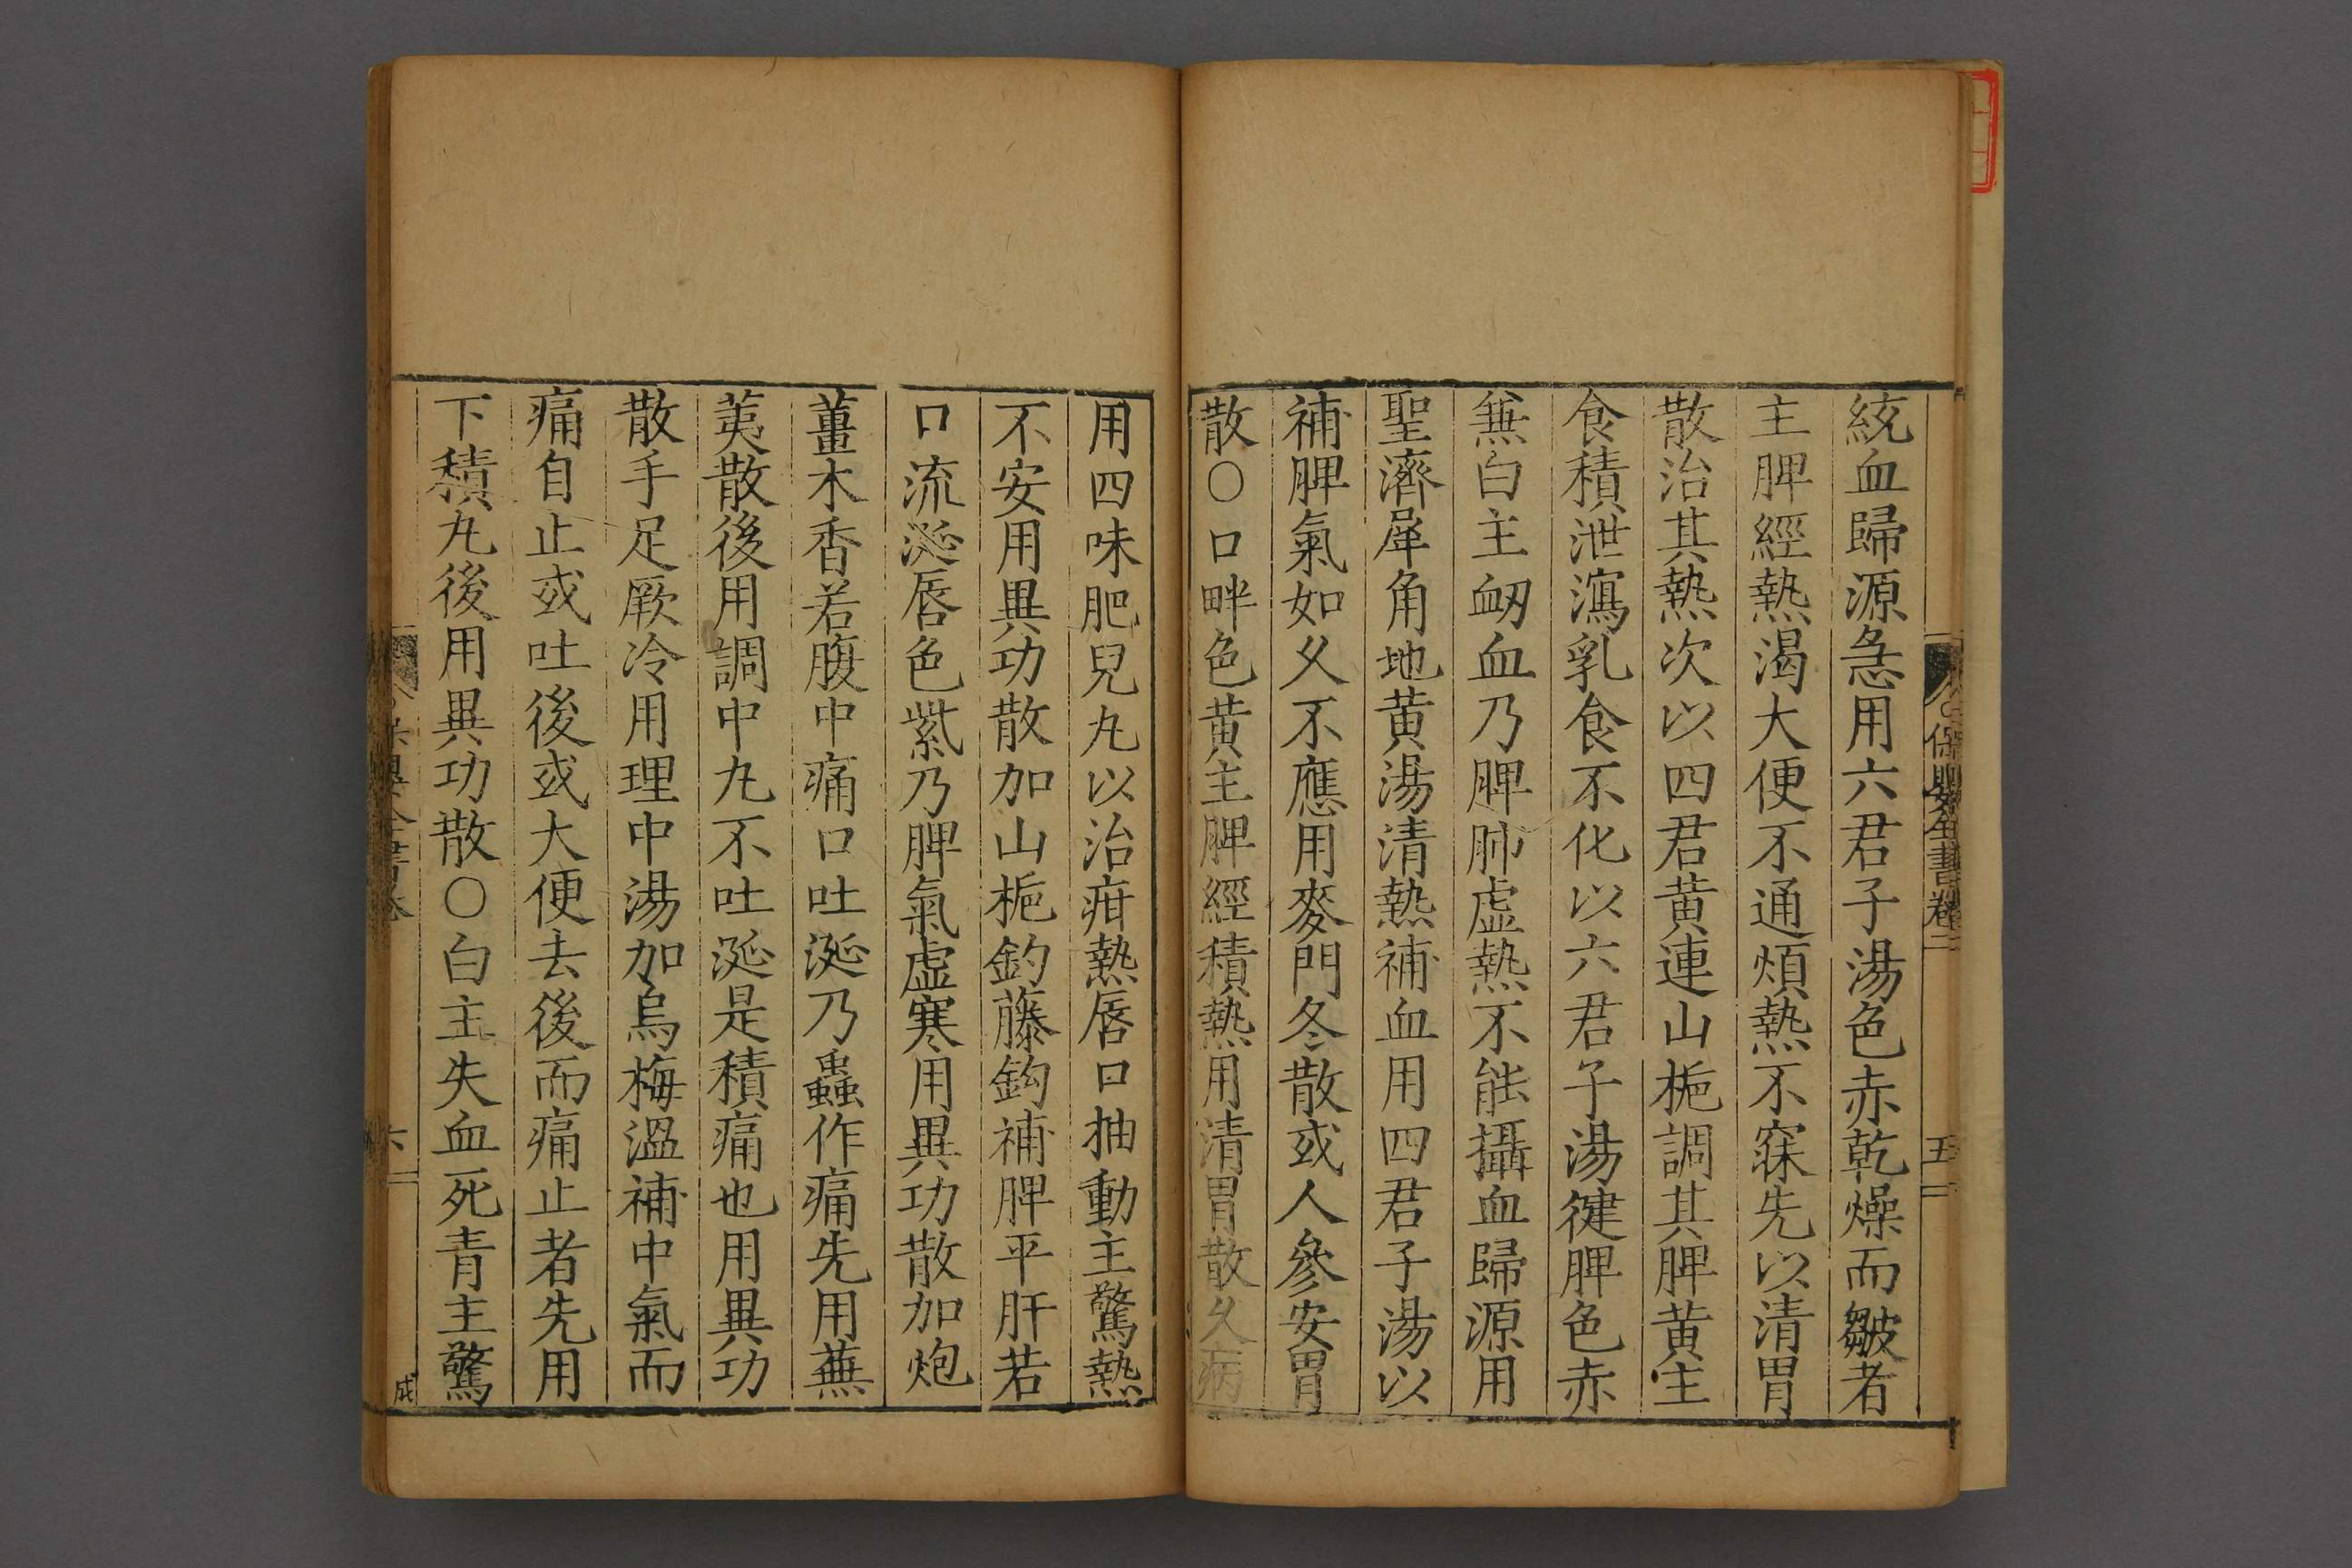 保嬰全書卷二
五
統血歸源急用六君子湯色赤乾燥而皺者
主脾經熱渴大便不通煩熱不寐先以清胃
散治其熱次以四君黄連山梔調其脾黄主
食積泄瀉乳食不化以六君子湯健脾色赤
兼白主衂血乃脾肺虚熱不能攝血歸源用
聖濟犀角地黄湯清熱補血用四君子湯以
補脾氣如久不應用麥門冬散或人參安胃
散○口畔色黄主脾經積熱用清胃散久病
用四味肥兒丸以治疳熱唇口抽動主驚熱
不安用異功散加山梔釣藤鈎補脾平肝若
口流涎唇色紫乃脾氣虚寒用異功散加炮
薑木香若腹中痛口吐涎乃蟲作痛先用蕪
荑散後用調中丸不吐涎是積痛也用異功
散手足厥冷用理中湯加烏梅溫補中氣而
痛自止或吐後或大便去後而痛止者先用
下積丸後用異功散○白主失血死青主驚
六
成